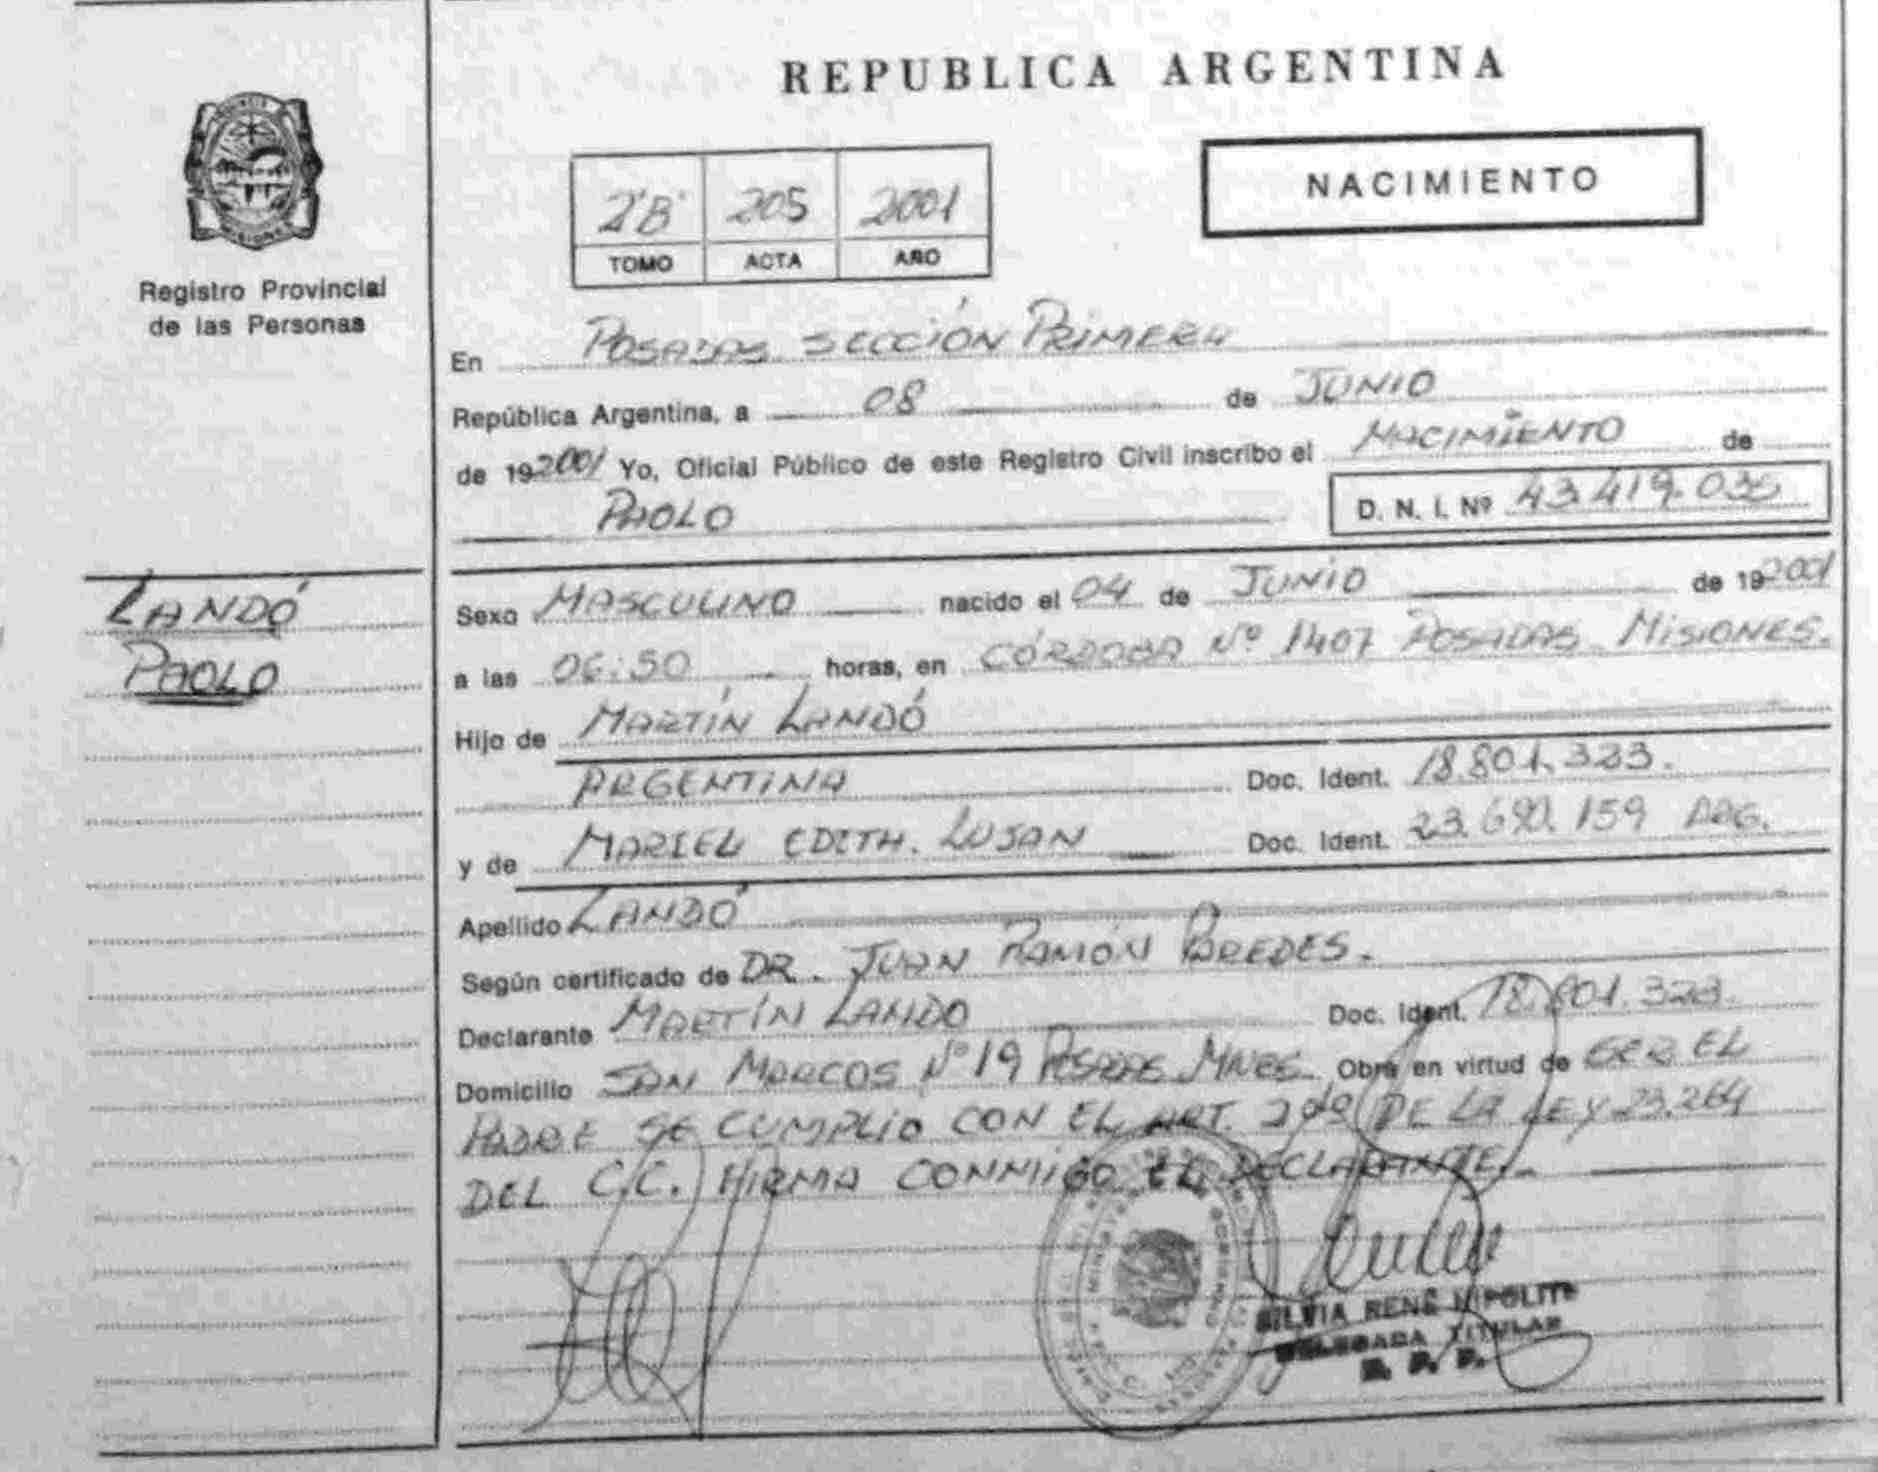 REPUBLICA ARGENTINA
NACIMIENTO
2'B' 205 2001
TOMO ACTA AÑO
Registro Provincial
de las Personas
En POSADAS SECCIÓN PRIMERA
República Argentina, a 08 de JUNIO
de 19 2001 Yo, Oficial Público de este Registro Civil inscribo el NACIMIENTO de
PAOLO D. N. I. Nº 43.419.035
LANDÓ
PAOLO
Sexo MASCULINO nacido el 04 de JUNIO de 19 2001
a las 06:50 horas, en CÓRDOBA Nº 1407 POSADAS MISIONES.
Hijo de MARTÍN LANDÓ
ARGENTINA Doc. Ident. 18.801.323.
y de MARIEL EDITH. LUJAN Doc. Ident. 23.690.159 ARG.
Apellido LANDÓ
Según certificado de DR. JUAN RAMÓN PAREDES.
Declarante MARTÍN LANDO Doc. Ident. 18.801.323.
Domicilio SAN MARCOS Nº 19 MNES. Obra en virtud de SER EL
PADRE SE CUMPLIO CON EL ART. 2do DE LA LEY 23.264
DEL C.C. FIRMA CONMIGO EL DECLARANTE.
SILVIA RENÉ HIPOLITO
DELEGADA TITULAR
R. P. P.